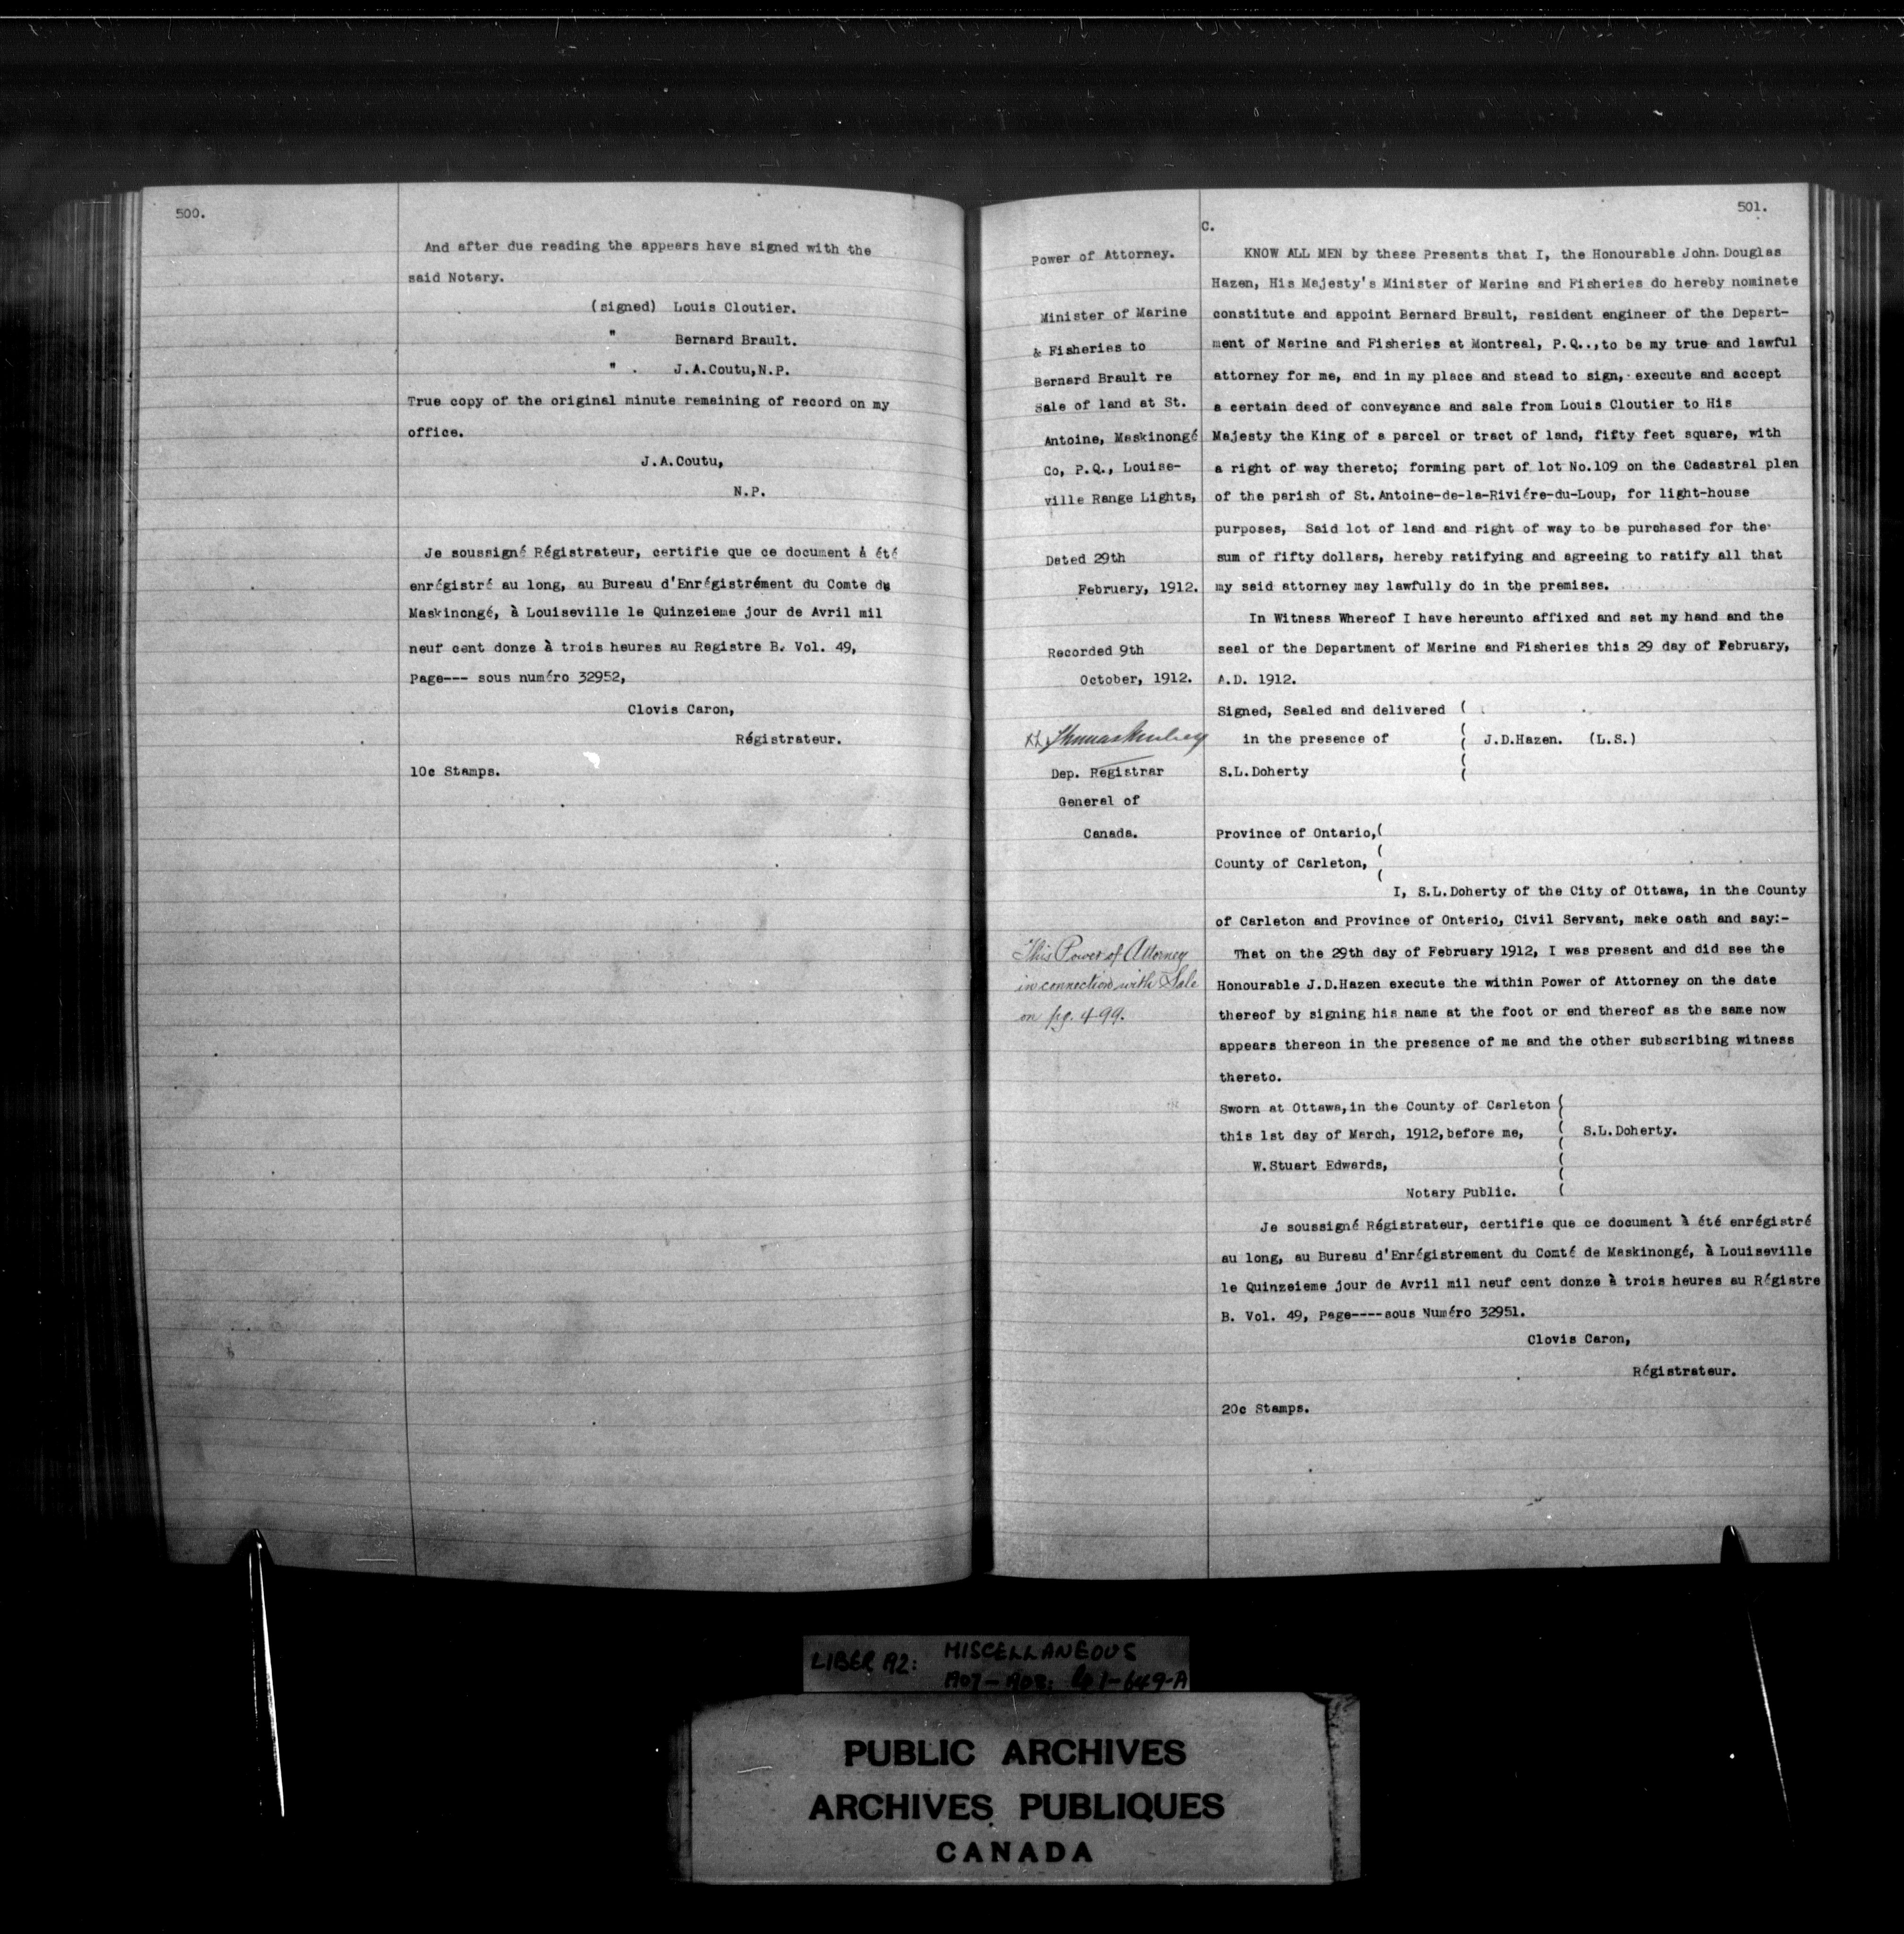 500.
And after due reading the appears have signed with the
said Notary.
(signed) Louis Cloutier.
" Bernard Brault.
" . J.A.Coutu,N.P.
True copy of the original minute remaining of record on my
office.
J.A.Coutu,
N.P.
Je soussigné Régistrateur, certifie que ce document à été
enrégistré au long, au Bureau d'Enrégistrément du Comte de
Maskinongé, à Louiseville le Quinzeieme jour de Avril mil
neuf cent donze à trois heures au Registre B. Vol. 49,
Page--- sous numéro 32952,
Clovis Caron,
Régistrateur.
10c Stamps.
501.
Power of Attorney.
Minister of Marine
& Fisheries to
Bernard Brault re
Sale of land at St.
Antoine, Maskinongé
Co, P.Q., Louise-
ville Range Lights,
Dated 29th
February, 1912.
Recorded 9th
October, 1912.
Dep. Registrar
General of
Canada.
This Power of Attorney
in connection with Sale
on pg. 499.
C.
KNOW ALL MEN by these Presents that I, the Honourable John Douglas
Hazen, His Majesty's Minister of Marine and Fisheries do hereby nominate
constitute and appoint Bernard Brault, resident engineer of the Depart-
ment of Marine and Fisheries at Montreal, P.Q..,to be my true and lawful
attorney for me, and in my place and stead to sign, execute and accept
a certain deed of conveyance and sale from Louis Cloutier to His
Majesty the King of a parcel or tract of land, fifty feet square, with
a right of way thereto; forming part of lot No.109 on the Cadastral plan
of the parish of St.Antoine-de-la-Riviére-du-Loup, for light-house
purposes, Said lot of land and right of way to be purchased for the
sum of fifty dollars, hereby ratifying and agreeing to ratify all that
my said attorney may lawfully do in the premises.
In Witness Whereof I have hereunto affixed and set my hand and the
seal of the Department of Marine and Fisheries this 29 day of February,
A.D. 1912.
Signed, Sealed and delivered (
in the presence of ( J.D.Hazen. (L.S.)
S.L.Doherty (
Province of Ontario,(
County of Carleton, (
I, S.L.Doherty of the City of Ottawa, in the County
of Carleton and Province of Ontario, Civil Servant, make oath and say:-
That on the 29th day of February 1912, I was present and did see the
Honourable J.D.Hazen execute the within Power of Attorney on the date
thereof by signing his name at the foot or end thereof as the same now
appears thereon in the presence of me and the other subscribing witness
thereto.
Sworn at Ottawa,in the County of Carleton (
this 1st day of March, 1912,before me, ( S.L.Doherty.
W.Stuart Edwards, (
Notary Public. (
Je soussigné Régistrateur, certifie que ce document à été enrégistré
au long, au Bureau d'Enrégistrement du Comté de Maskinongé, à Louiseville
le Quinzeieme jour de Avril mil neuf cent donze à trois heures au Régistre
B. Vol. 49, Page----sous Numéro 32951.
Clovis Caron,
Régistrateur.
20c Stamps.
LIBER A2: MISCELLANEOUS
1907-1908; 1-649-A
PUBLIC ARCHIVES
ARCHIVES PUBLIQUES
CANADA